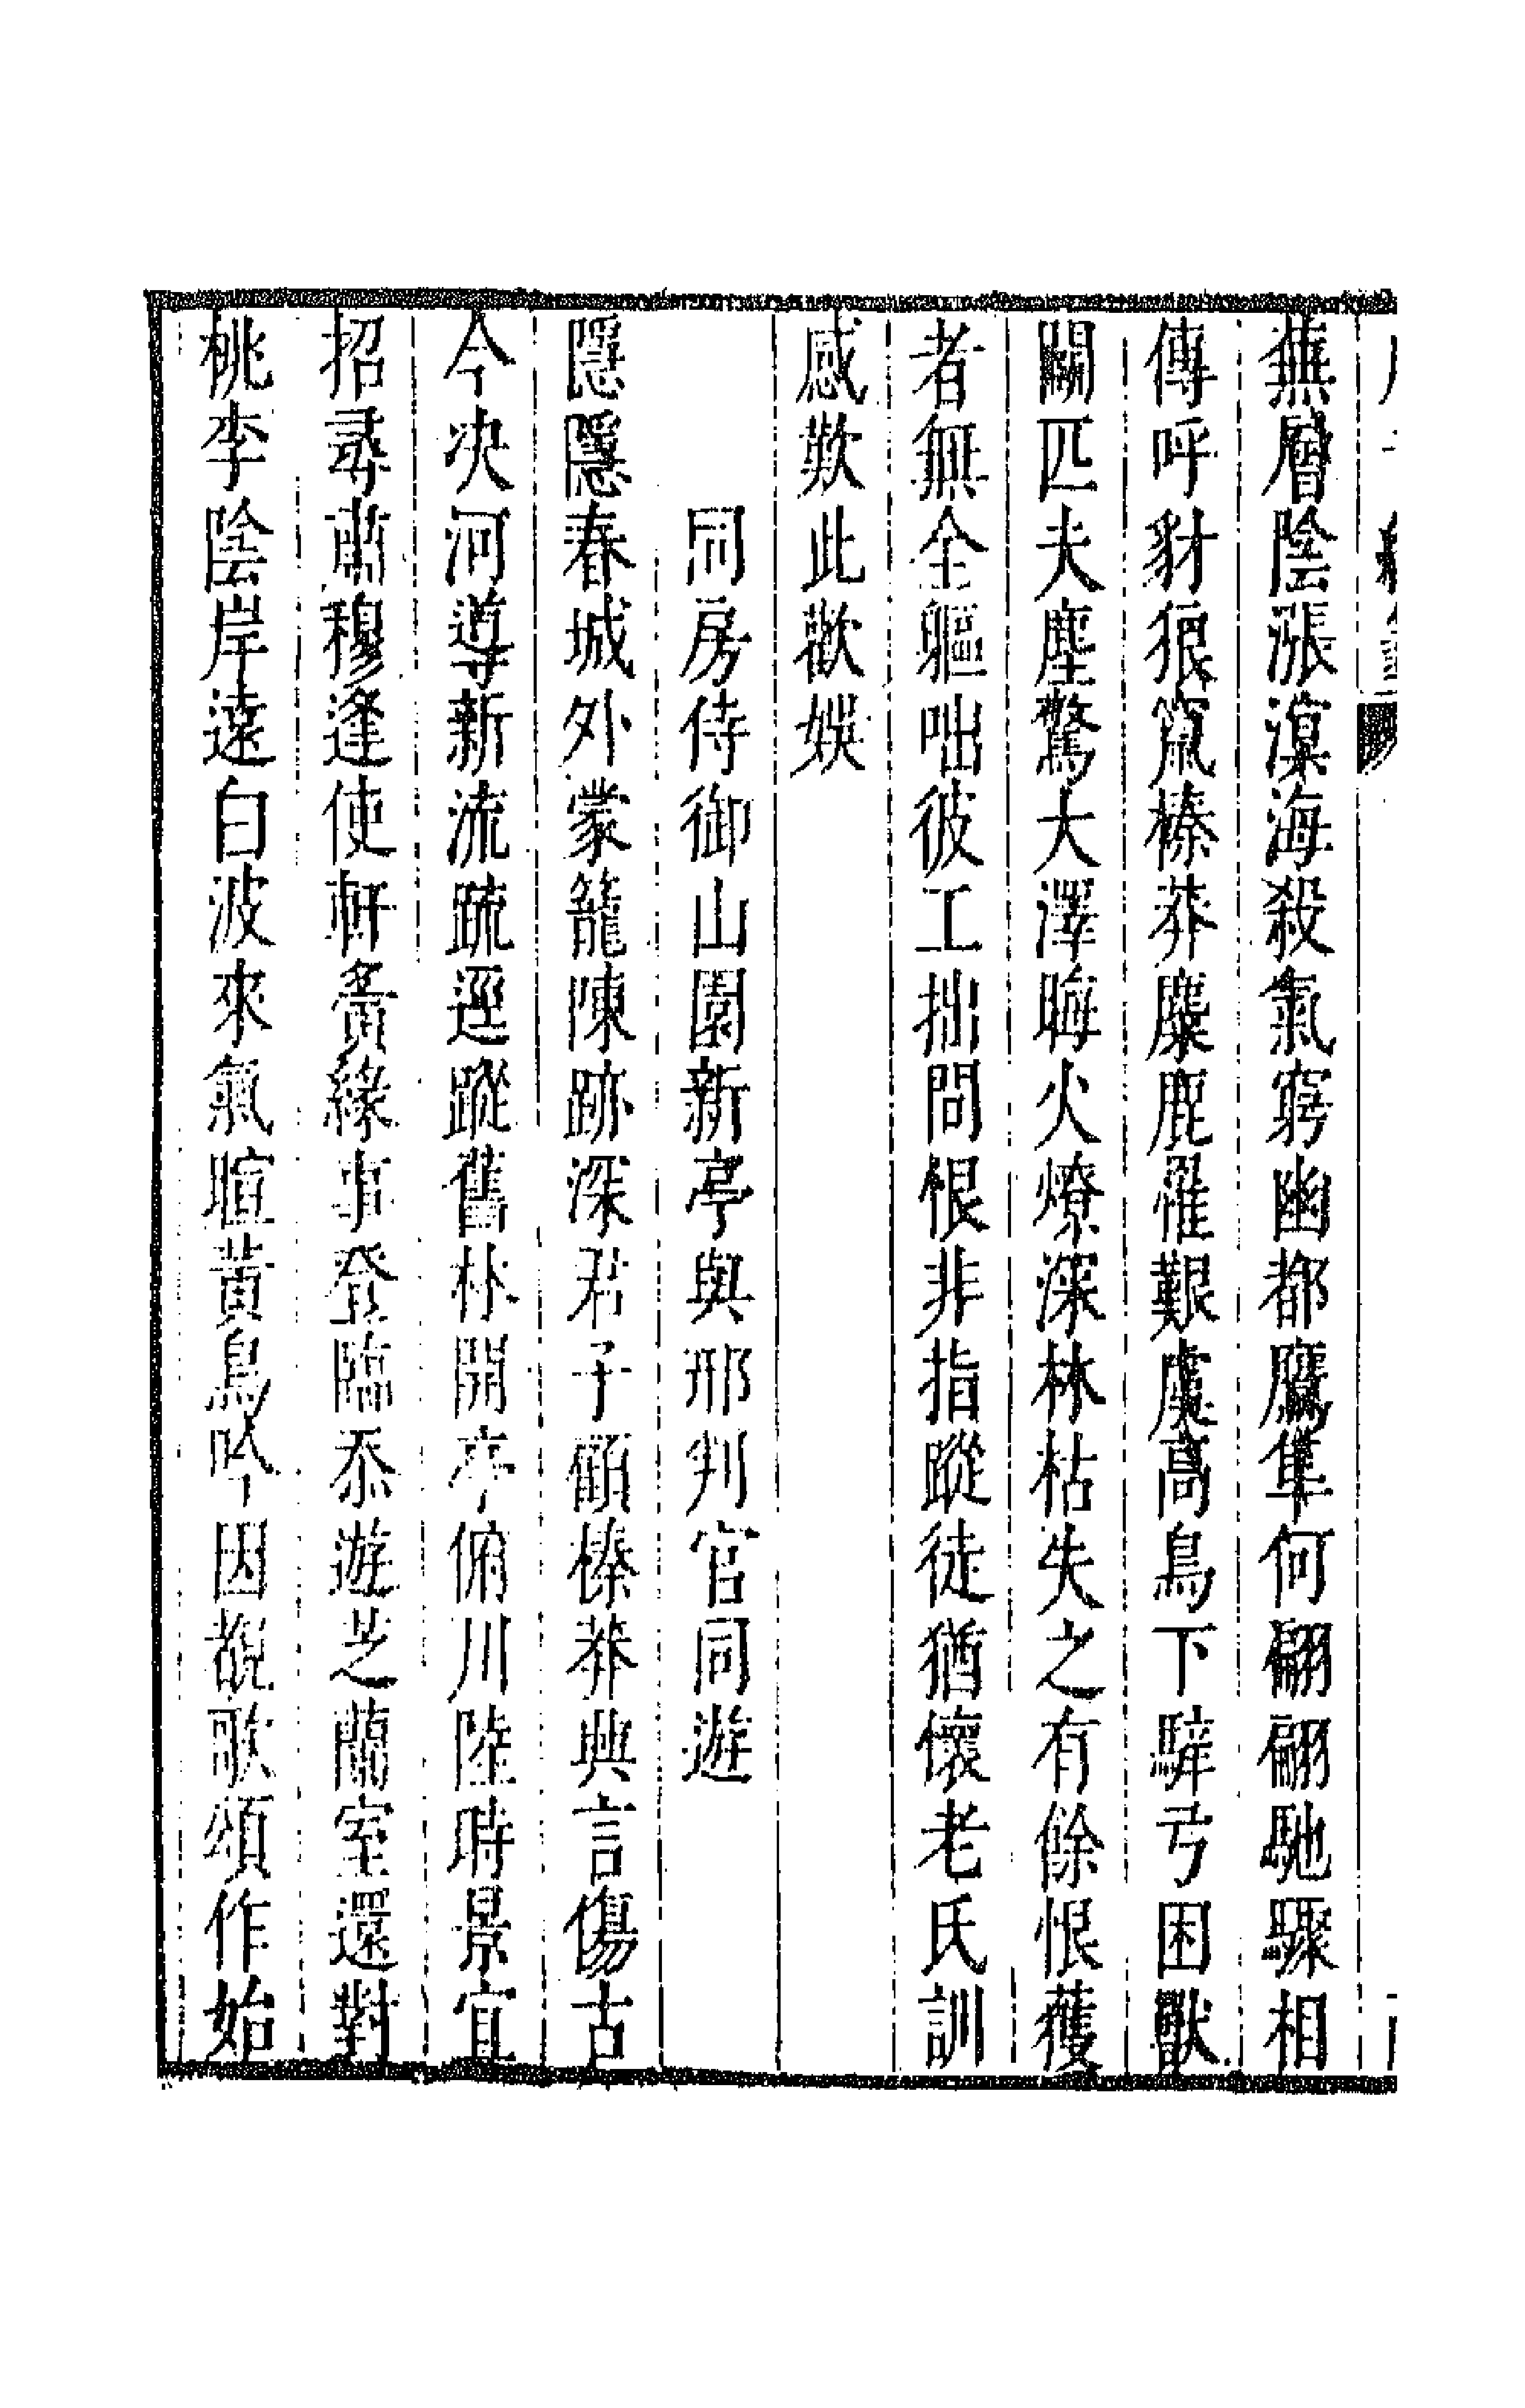 蕪層陰漲溟海殺氣窮幽都鷹隼何翩翩馳驟相
傳呼豺狼竄榛莽麋鹿罹艱虞高鳥下騂弓困獸
鬬匹夫塵驚大澤晦火燎深林枯失之有餘恨獲
者無全軀咄彼工拙問恨非指蹤徒猶懷老氏訓
感歎此歡娛
同房侍御山園新亭與邢判官同遊
隱隱春城外蒙籠陳跡深君子顧榛莽興言傷古
今决河導新流疏逕蹤舊林開亭俯川陸時景宜
招尋肅穆逢使軒夤緣事登臨忝遊芝蘭室還對
桃李陰岸遠白波來氣暄黃鳥吟因覩歌頌作始